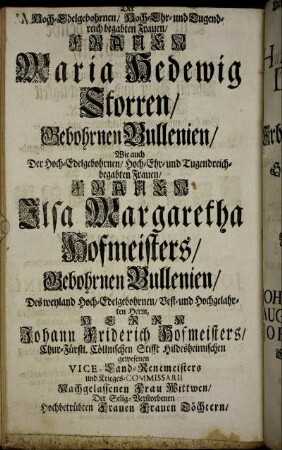 Der
Hoch-Edelgebohrnen/ Hoch-Ehr-und Tugend-
reich begabten Frauen/
FRAUEN
Maria Hedewig
Storren/
Gebohrnen Bullenien/
Wie auch
Der Hoch-Edelgebohrnen/ Hoch-Ehr-und Tugendreich-
begabten Frauen/
FRAUEN
Ilsa Margaretha
Hofmeisters/
Gebohrnen Bullenien/
Des weyland Hoch-Edelgebohrnen/ Vest-und Hochgelahr-
ten Herrn,
HERRN
Johann Friderich Hofmeisters/
Chur-Fürstl. Cöllnischen Stifft Hildesheimischen
gewesenen
VICE-Land-Rentmeisters
und Krieges-COMMISSARII
Nachgelassenen Frau Wittwen/
Der Selig-Verstorbenen
Hochbetrübten Frauen Frauen Töchtern/